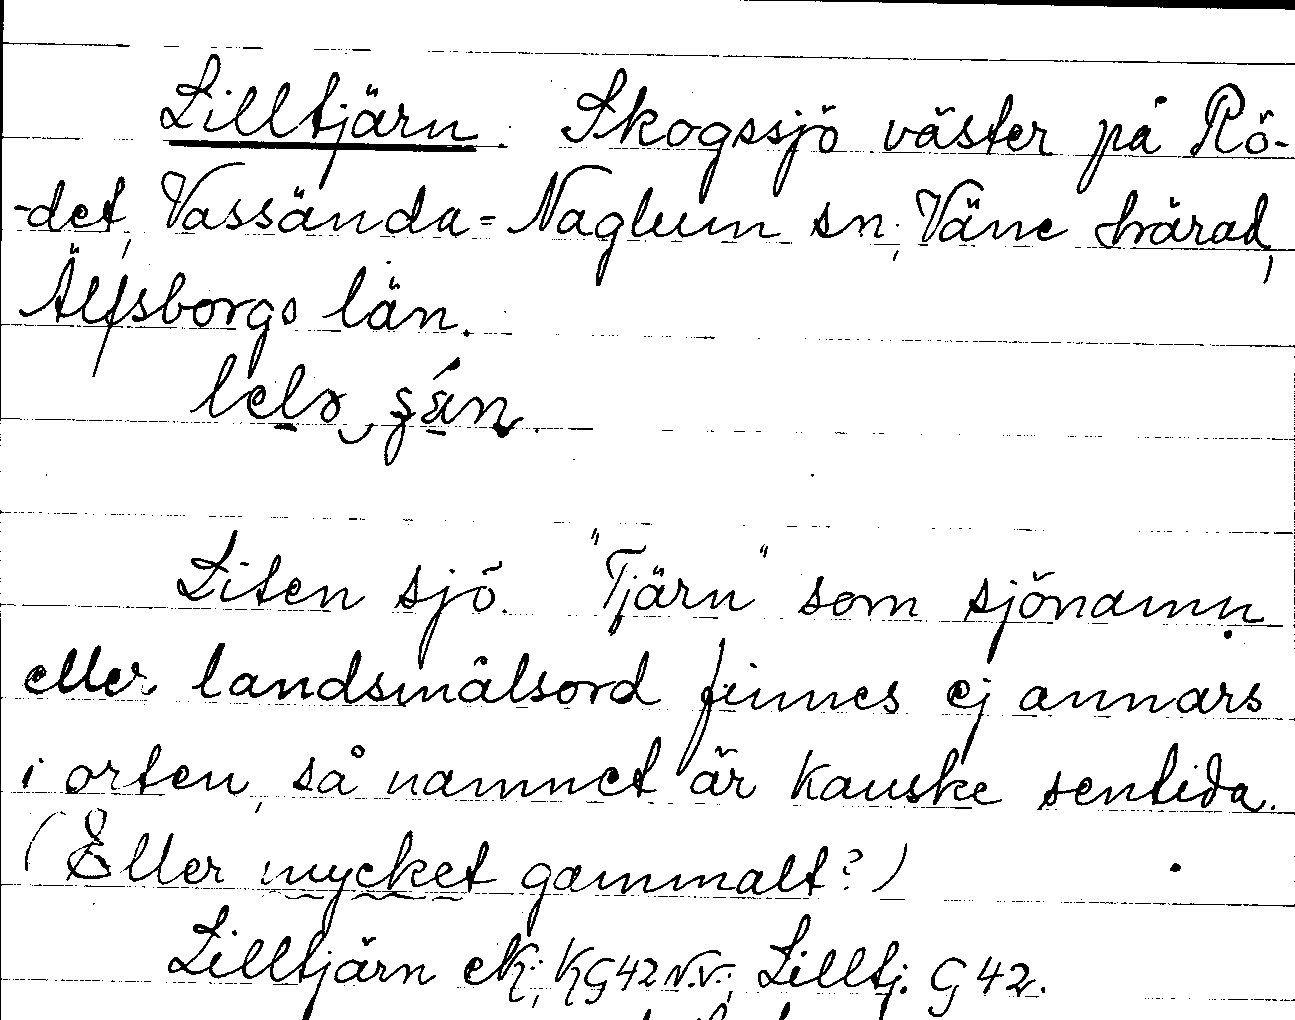 Lilltjärn. Skogssjö väster på Rö-
-det, Vassända=Naglum sn, Väne härad,
Älfsborgs län.
Liten sjö. "Tjärn" som sjönamn
eller landsmålsord finnes ej annars
i orten, så namnet är kanske sentida.
(Eller mycket gammalt?)
Lilltjärn ek; KG42N.V.; Lilltj. G42.